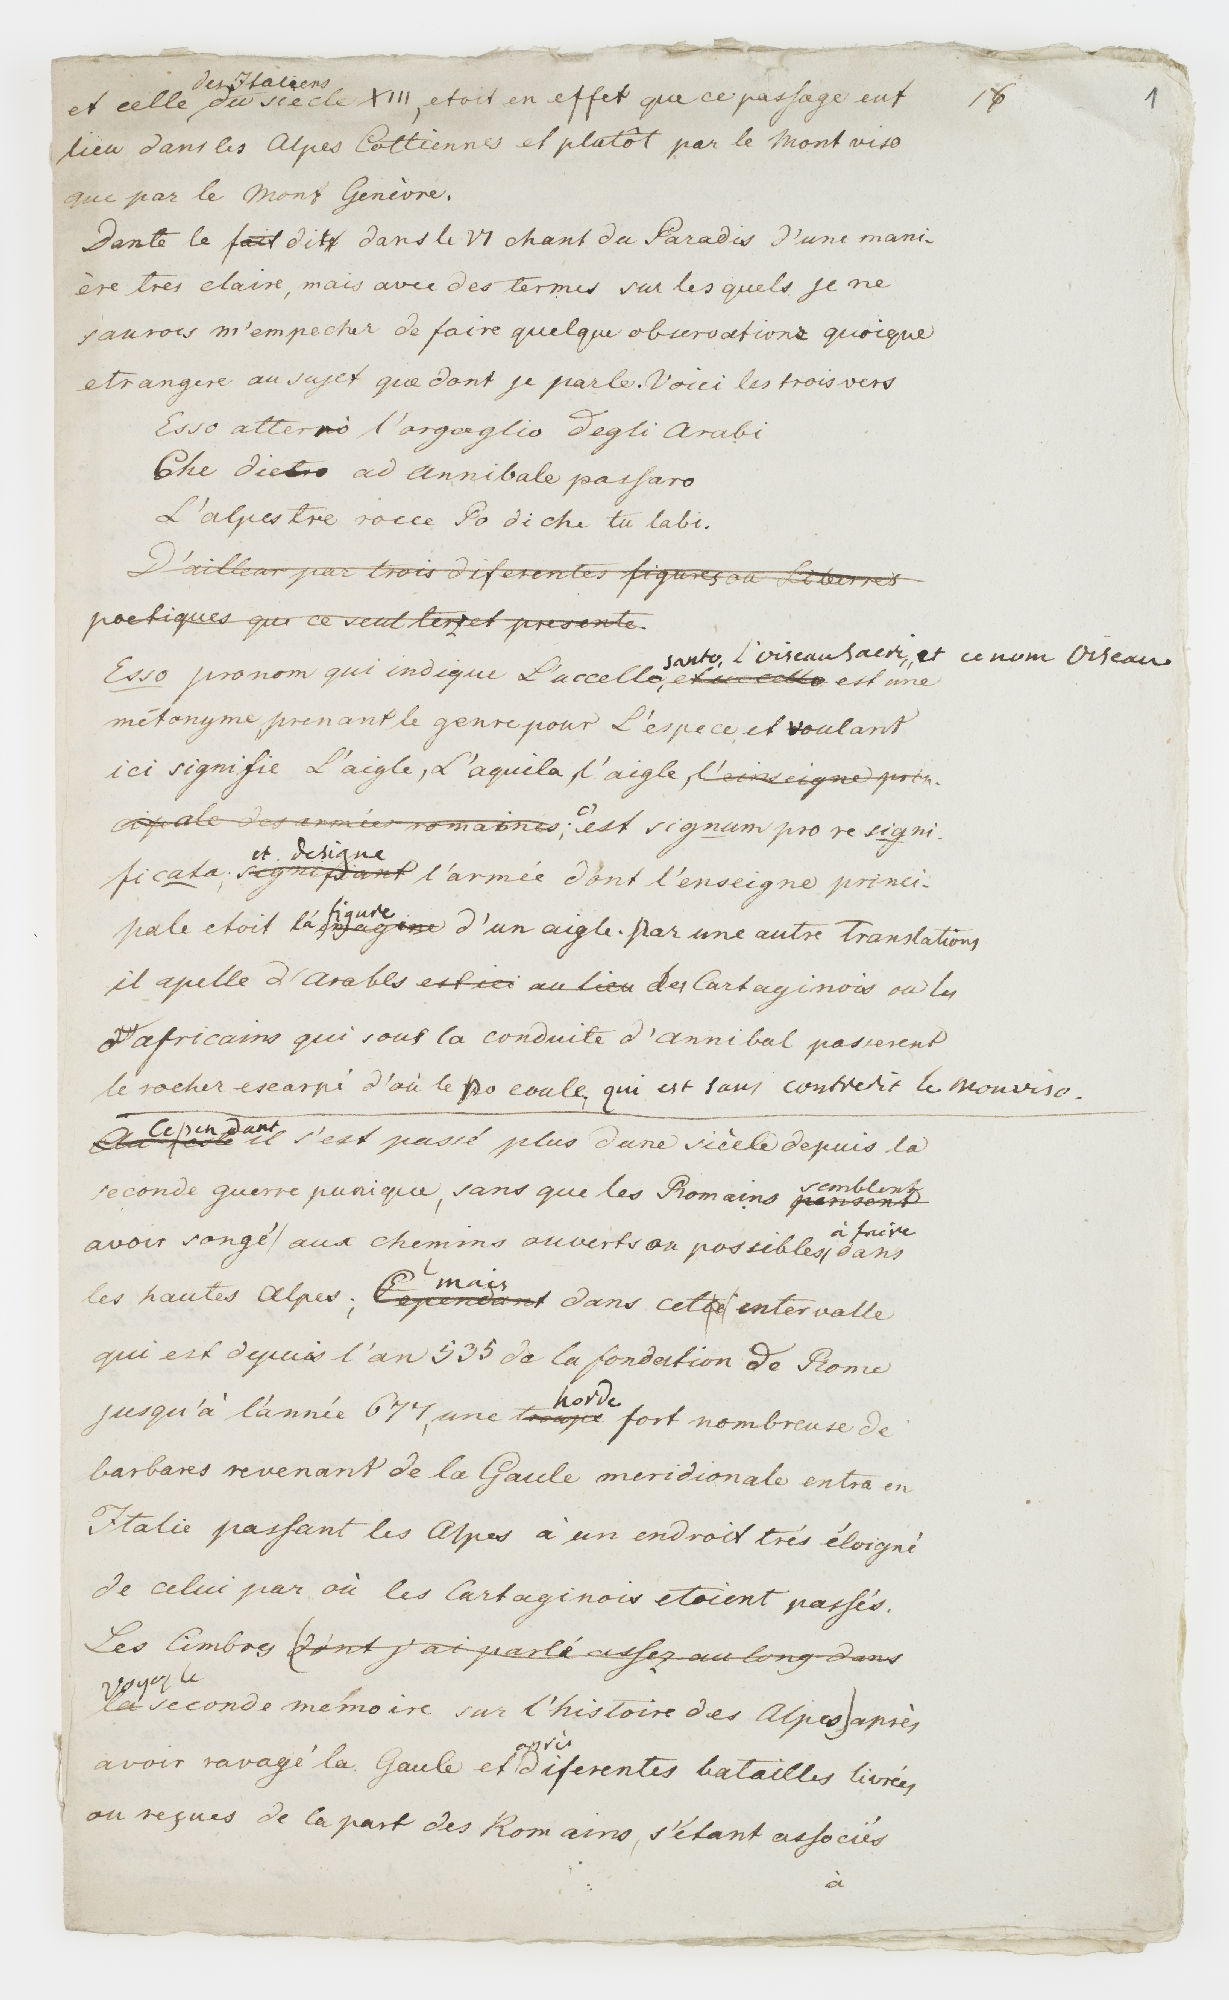 des Italiens
et celle du siecle XIII, etoit en effet que ce passage eut 16 1
lieu dans les Alpes Cottiennes et plutôt par le Mont viso
que par le Mont Genèvre.
Dante le fait dit dans le VI chant du Paradis d'une mani-
ère tres claire, mais avec des termes sur lesquels je ne
saurois m'empecher de faire quelque observations quoique
etrangere au sujet que dont je parle. Voici les trois vers
Esso atterrò l'orgoglio degli Arabi
Che dietro ad Annibale passaro
L'alpestre rocce Po di che tu labi.
D'ailleur par trois diferentes figures ou Liberrés
poetiques que ce seul terzet presente.
santo, l'oiseau sacri, et ce nom Oiseau
Esso pronom qui indique L'uccello, et uccello est une
métonyme, prenant le genre pour L'espece, et voulant
ici signifie L'aigle, L'aquila, l'aigle, l'einseigne prin-
cipale des armées romaines; c'est signum pro re signi-
et designe
ficata; signifiant l'armée dont l'enseigne princi-
figure
pale etoit la imagine d'un aigle. par une autre translations
il apelle d'Arabes est ici au lieu des Cartaginois ou les
d'africains qui sout la conduite d'annibal passerent
le rocher escarpé d'où le po coule, qui est sans contredit le Monviso.
Cependant
Au reste il s'est passé plus dune siècle depuis la
semblent
seconde guerre punique, sans que les Romains pensent
à faire
avoir songé aux chemins ouverts ou possibles, dans
mais
les hautes Alpes; Cependant dans cette intervalle
qui est depuis l'an 535 de la fondation de Rome
horde
jusqu'à l'année 677, une troupe fort nombreuse de
barbares revenant de la Gaule meridionale entra en
Italie passant les Alpes à un endroit trés éloigné
de celui par où les Cartaginois etoient passés.
Les Cimbres (dont j'ai parlé assez au long dans
voyez le
la seconde mémoire sur l'histoire des Alpes) après
après
avoir ravagé la Gaule et diferentes batailles livrées
ou reçues de la part des Romains, s'étant associés
à